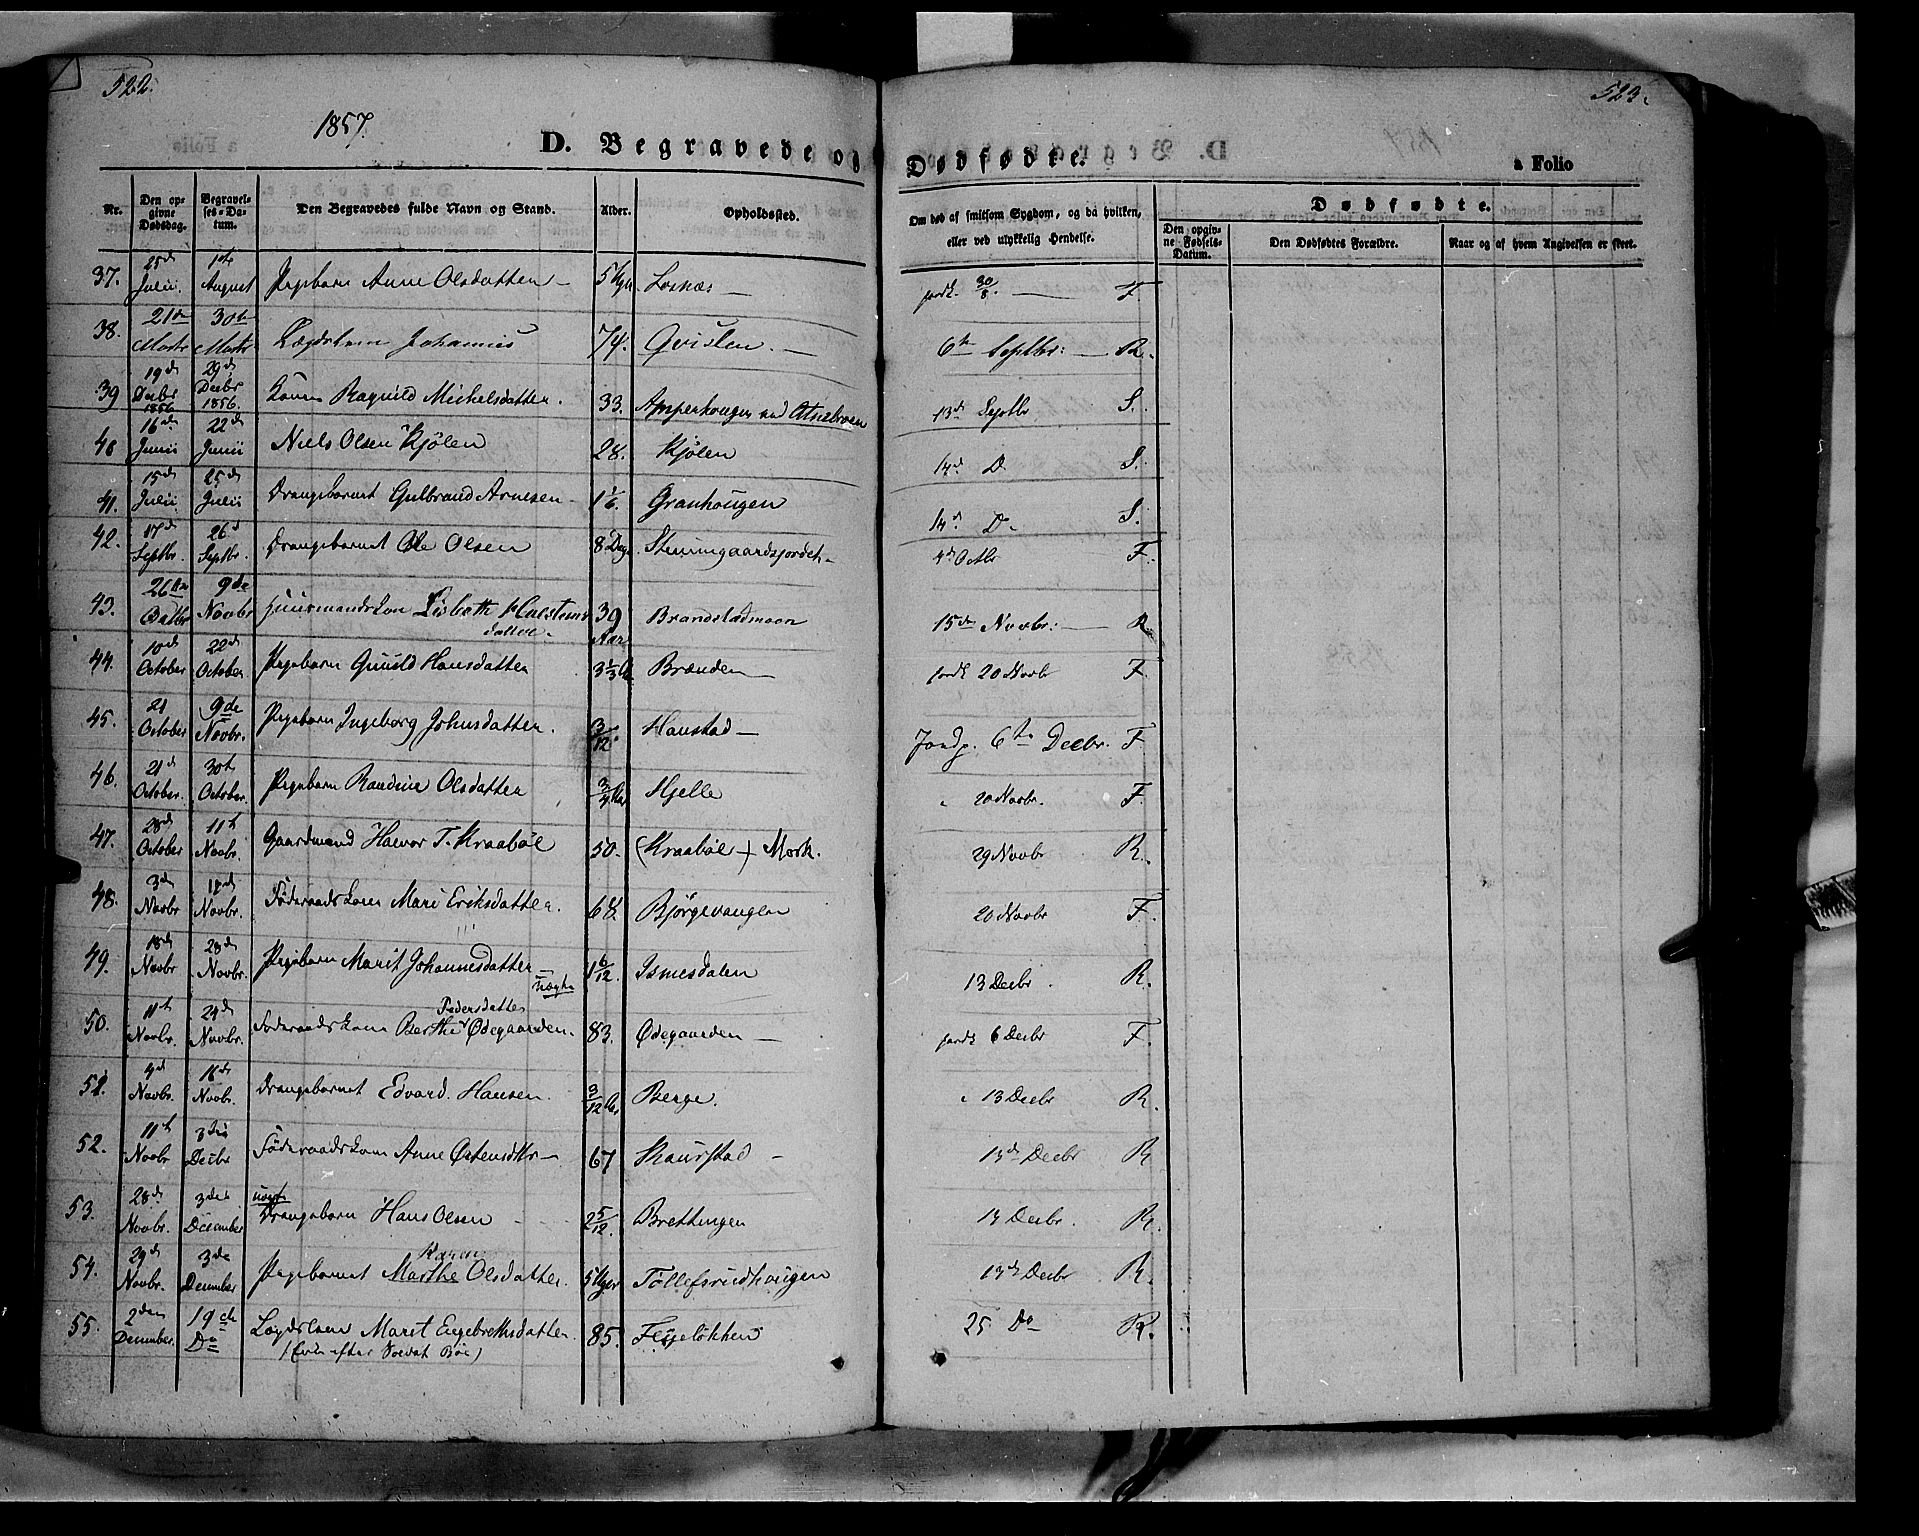 522.
523.
1857.
D. Begravede og Dødfødte.
a Folio
Nr.
Den opgivne Dødsdag.
Begravelses-Datum.
Den Begravedes fulde Navn og Stand.
Alder.
Opholdssted.
Om død af smitsom Sygdom, og da hvilken, eller ved ulykkelig Hendelse.
Dødfødte.
Den opgivne Fødsels-Datum.
Den Dødfødtes Forældre.
Naar og af hvem Angivelsen er skeet.
37. 25d Julii. 1ste August Pigebarn Anne Olsdatten 5 Losnæs 30/8 F
38. 21de Marts 30te Marts Lægdslem Johannes 74. Qvislen. 6te Septbr: R.
39 19d Decbr 1856 29d Decbr 1856. Konen Ragnild Michelsdatter. 33. Amperhougen ved Atnebroen 13d Septbr S.
40 16de Junii 22d Junii Niels Olsen Kjølen 28. Kjølen 14d Do S.
41. 15de Julii 25d Julii Drengebarnet Gulbrand Arnesen 1 1/6. Granhougen 14d Do S.
42. 17d Septbr. 26d Septbr. Drengebarnet Ole Olsen 8 Dage Steningaardsjordet 4d Octbr F.
43. 26 Octbr 9de Novbr Huusmandskon Lisbeth Halstensdatter 39 Aar Brandstadmoen 15de Novbr: R
44. 10d October 22d October Pigebarn Gunild Hansdatter 3 1/3 Brænden 20 Novbr F.
45. 21 October 9de Novbr. Pigebarn Ingeborg Johnsdatter. 3/12. Haustad 6te Decbr. F
46. 21d October. 30te October. Pigebarn Randine Olsdatter 3/4 Hjelle 20 Novbr. F.
47. 28d October 11te Novbr. Gaardmand Halvor T. Kraabøl 50. Kraabøl + Mork. 29 Novbr R.
48. 3d Novbr Novbr. Føderaadskone Mari Eriksdatter. 68. Bjørgevangen 20 Novbr F.
49. 18d Novbr 28d Novbr. Pigebarn Marit Johannesdatter uægte 1 6/12. Ismesdalen 13 Decbr. R.
50. 11te Novbr. 24d Novbr. Føderaadskone Berthe Pedersdatter Ødegaarden. 83. Ødegaarden 6 Decbr F.
51. 4d Novbr. 16de Novbr. Drengebarnet Edvard Hansen. 3/12 Berge. 13 Decbr R.
52. 11te Novbr 3die Decbr Føderaadskone Anne Østensdtr 67 Skaurstad 13de Decbr R
53. 28de Novbr. 3die December uægt Drengebarn Hans Olsen 2 5/12. Brettingen 13 Decbr. R.
54. 29d Novbr. 3de December Pigebarnet Marthe Karen Olsdatter. 5 Tollefsrudhougen 13de Decbr R.
55. 2den December. 19de Do Lægdslem Marit Engebretsdatter. 85. Feieløkken 25 Do R.
(Enke efter Soldat Bøe)